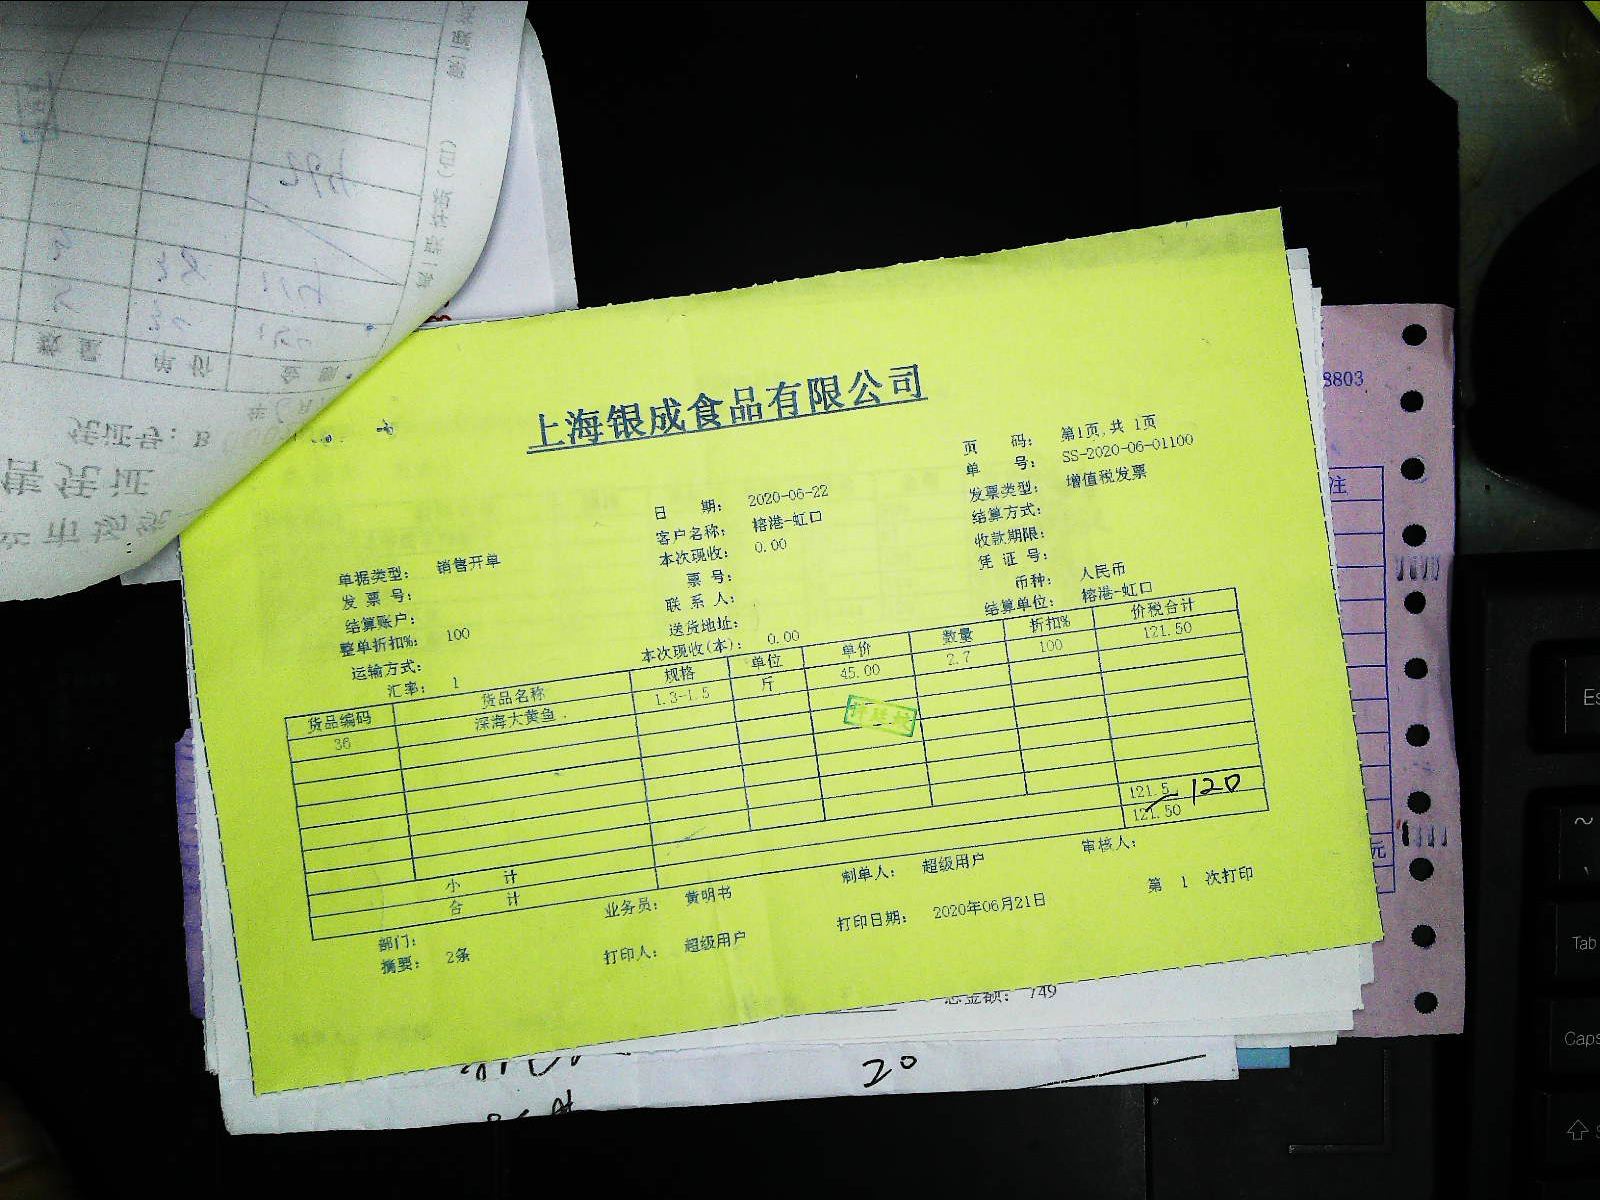 上海银成食品有限公司
页 码: 第1页,共 1页
单 号: SS-2020-06-01100
日 期: 2020-06-22
发票类型: 增值税发票
客户名称: 榕港-虹口
结算方式:
单据类型: 销售开单
本次现收: 0.00
收款期限:
发 票 号:
票 号:
凭 证 号:
结算账户:
联 系 人:
币种: 人民币
整单折扣%: 100
送货地址:
结算单位: 榕港-虹口
运输方式:
本次现收(本): 0.00
汇率: 1
货品编码 货品名称 规格 单位 单价 数量 折扣% 价税合计
36 深海大黄鱼 1.3-1.5 斤 45.00 2.7 100 121.50
小 计 121.5 120
合 计 121.50
部门: 业务员: 黄明书 制单人: 超级用户 审核人:
摘要: 2条 打印人: 超级用户 打印日期: 2020年06月21日 第 1 次打印
总金额: 749
20
8803
注
元
数量 单价 金额
凭证号: B
售凭证
Es
Tab
Caps